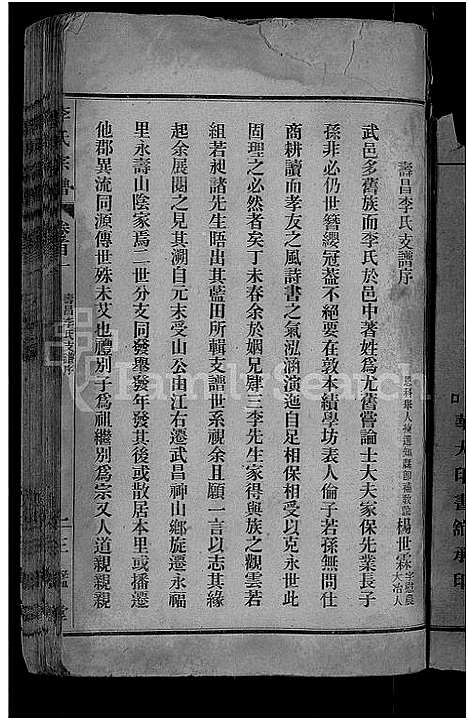 壽昌李氏支譜序
恩科舉人揀選知縣卽補教諭楊世霖字慰農大冶人
武邑多舊族而李氏於邑中著姓爲尤舊嘗論士大夫家保先業長子
孫非必仍世簪纓冠蓋不絕要在敦本績學坊表人倫子若孫無間仕
商耕讀而孝友之風詩書之氣泓涵演迤自足相保相受以克永世此
固理之必然者矣丁未春余於姻兄肆三李先生家得與族之觀雲若
組若昶諸先生晤出其藍田所輯支譜世系視余且願一言以志其緣
起余展閱之見其溯自元末受山公由江右遷武昌神山鄉旋遷永福
里永壽山陰家焉二世分支同發舉發年發其後或散居本里或播遷
他郡異流同源傳世殊未艾也禮別子爲祖繼別爲宗又人道親親親
李氏宗譜
卷首一
壽昌李氏支譜序
二三
堂
中華大印書館承印
FamilySearch